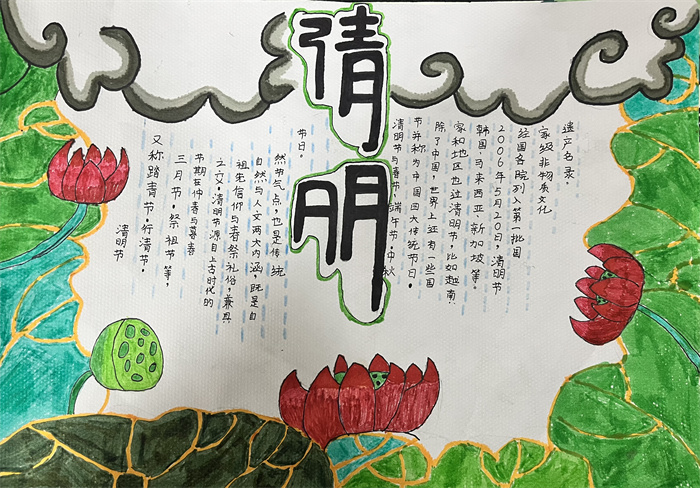 清明
清明节
又称踏青节·行清节·
三月节·祭祖节等，
节期在仲春与暮春
之交·清明节源自上古时代的
祖先信仰与春祭礼俗，兼具
自然与人文两大内涵，既是自
然节气点，也是传统
节日。
清明节与春节、端午节·中秋
节并称为中国四大传统节日。
除了中国，世界上还有一些国
家和地区也过清明节，比如越南
韩国，马来西亚、新加坡等。
2006年5月20日，清明节
经国务院列入第一批国
家级非物质文化
遗产名录。